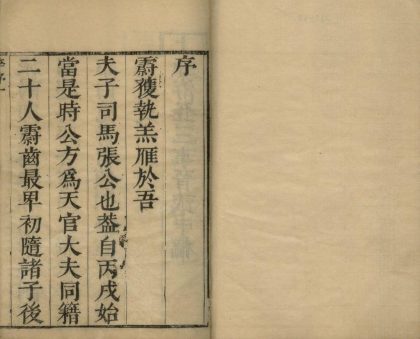 序
霨獲執羔雁於吾
夫子司馬張公也葢自丙戌始
當是時公方爲天官大夫同籍
二十人霨齒最卑初隨諸子後